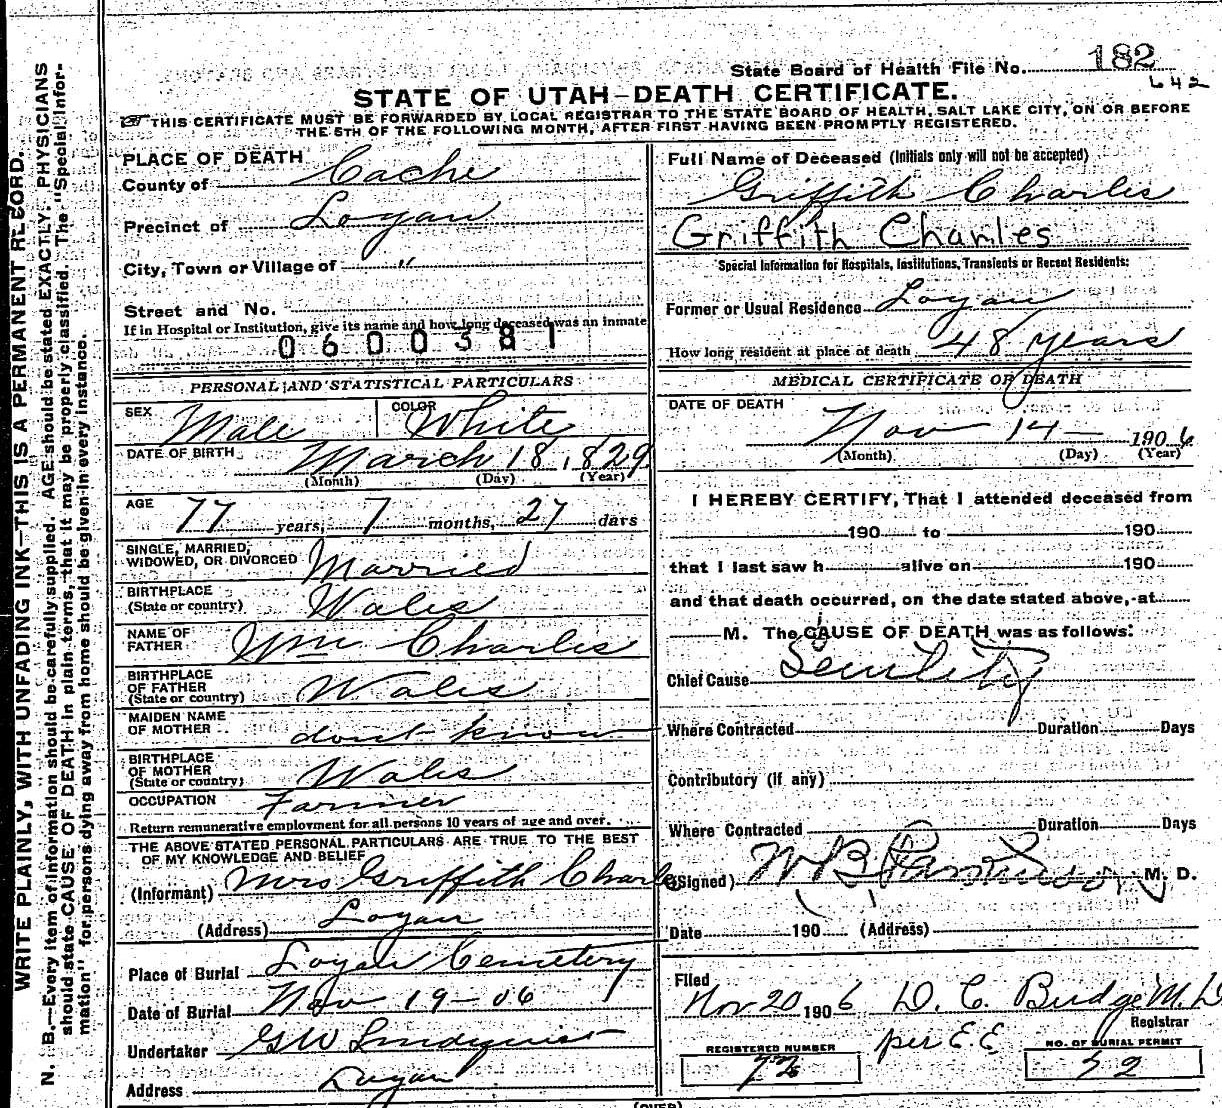 State Board of Health File No. 182
642
STATE OF UTAH—DEATH CERTIFICATE.
THIS CERTIFICATE MUST BE FORWARDED BY LOCAL REGISTRAR TO THE STATE BOARD OF HEALTH, SALT LAKE CITY, ON OR BEFORE
THE 5TH OF THE FOLLOWING MONTH, AFTER FIRST HAVING BEEN PROMPTLY REGISTERED.
WRITE PLAINLY, WITH UNFADING INK—THIS IS A PERMANENT RECORD.
N. B.—Every item of information should be carefully supplied. AGE should be stated EXACTLY. PHYSICIANS
should state CAUSE OF DEATH in plain terms, that it may be properly classified. The "Special Infor-
mation" for persons dying away from home should be given in every instance.
PLACE OF DEATH
County of Cache
Precinct of Logan
City, Town or Village of "
Street and No.
If in Hospital or Institution, give its name and how long deceased was an inmate
0600381
PERSONAL AND STATISTICAL PARTICULARS
SEX Male COLOR White
DATE OF BIRTH March 18, 1829
(Month) (Day) (Year)
AGE 77 years, 7 months, 27 days
SINGLE, MARRIED,
WIDOWED, OR DIVORCED Married
BIRTHPLACE
(State or country) Wales
NAME OF
FATHER Wm Charles
BIRTHPLACE
OF FATHER
(State or country) Wales
MAIDEN NAME
OF MOTHER dont know
BIRTHPLACE
OF MOTHER
(State or country) Wales
OCCUPATION Farmer
Return remunerative employment for all persons 10 years of age and over.
THE ABOVE STATED PERSONAL PARTICULARS ARE TRUE TO THE BEST
OF MY KNOWLEDGE AND BELIEF
(Informant) Mrs Griffith Charles
(Address) Logan
Place of Burial Logan Cemetery
Date of Burial Nov 19-06
Undertaker GW Lindquist
Address Logan
Full Name of Deceased (Initials only will not be accepted)
Griffith Charles
Griffith Charles
Special Information for Hospitals, Institutions, Transients or Recent Residents:
Former or Usual Residence Logan
How long resident at place of death 48 years
MEDICAL CERTIFICATE OF DEATH
DATE OF DEATH
Nov 14— 1906
(Month) (Day) (Year)
I HEREBY CERTIFY, That I attended deceased from
190 to 190
that I last saw h alive on 190
and that death occurred, on the date stated above, at
M. The CAUSE OF DEATH was as follows:
Chief Cause Senility
Where Contracted Duration Days
Contributory (if any)
Where Contracted Duration Days
(Signed) W B M. D.
Date 190 (Address)
Filed
Nov 20 1906 D. C. Budge M.D.
Registrar
per E.E.
REGISTERED NUMBER
NO. OF BURIAL PERMIT
52
(OVER)